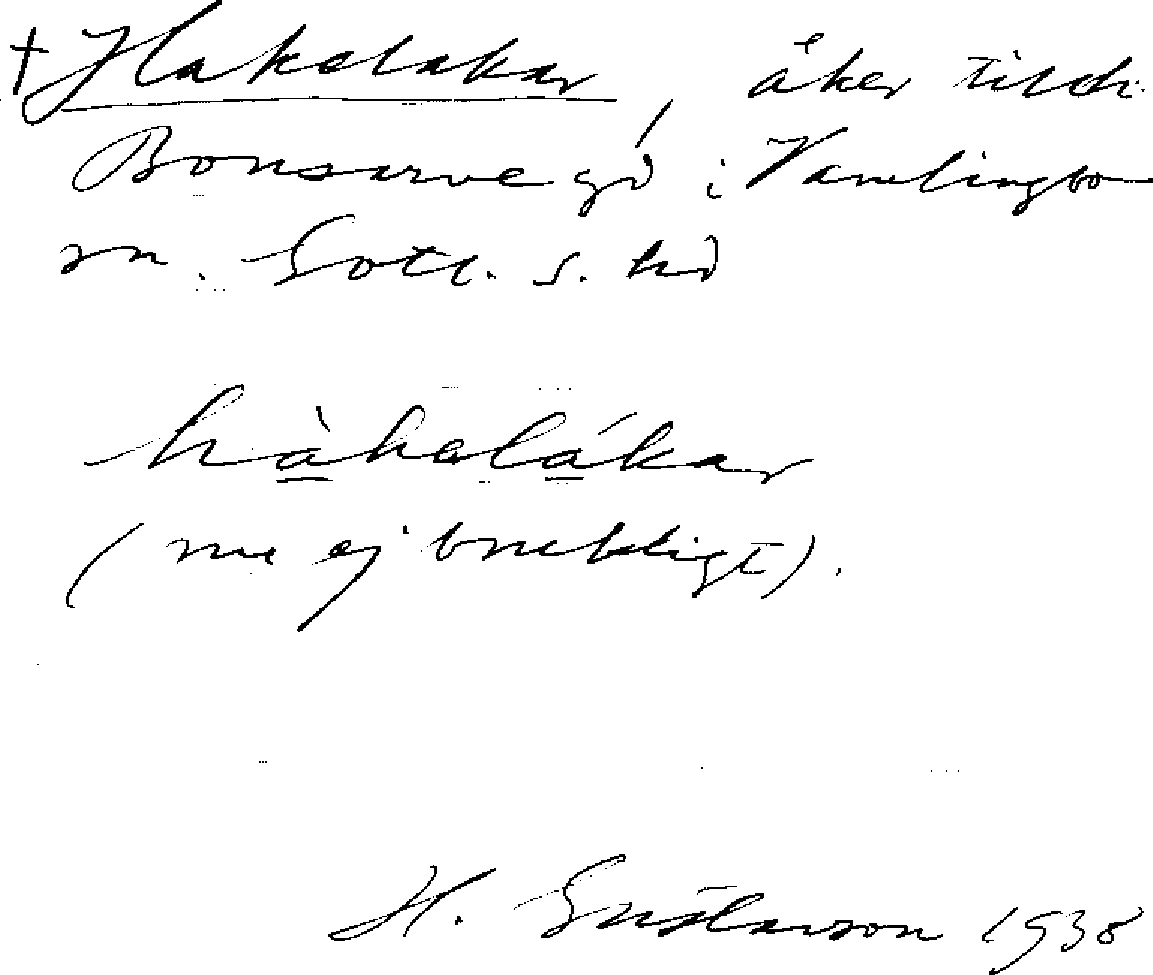 † Hakelakar, åker tillh.
Bonsarve gd i Vamlingbo
sn. Gotl. s. hd
hàkelákar
(nu ej brukligt).
H. Gustavson 1938